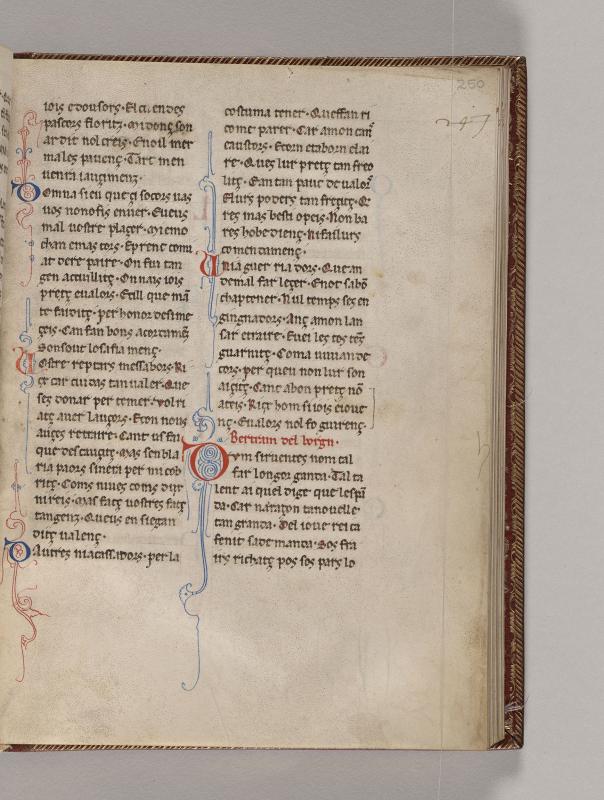 250
247
iois edousors. El ci en des
pascors floritz. mi donç son
ar dit nol creis. Enoil mer
males pauenç. Tart men
uenra iauzimenz.
Domna sieu queçi socors uas
uos non ofis enuer. Eueus
mal uostre plaçer. mi emo
chan emas tors. Eprenc comi
at dere paire. On fui tan
gen acuillitç. On nais iois
pretç eualors. Ecill que mã
te faiditç. per honor desi me
çeis. Can fan bons acordamẽz
Son sout lo sifia menç.
Vostre reptars mes sabors. Ri
cç car cuidas tan ualer. Que
ses donar per temer. volri
atç auer lauçors. Econ nous
auçes retraire. Cant us fai
que descuigitç. mas sen bla
ria paors sineta per mi cob
ritç. Coms nines coms dur
mireis. mas fatç uostres fatç
tangenz. Queus en siegan
ditç ualenç.
Dautres niacassadors. per la
costuma tener. Queffan ri
come parer. Car amon can
caustors. Ecorn etaborn elai
re. Ques lur pretç tan freo
litç. Ean tan pauc de ualor
Elurs poders tan freçitç. Q
res mas besti opeis. Non ba
res hobedienç. Nifailurs
comendamenç.
Nia guer ria dors. Quean
demal far leçer. Enot sabõ
chaptener. Nul temps ses en
gingnadors. Anç amon lan
sar etraire. Euei les toç têç
guarnitç. Coma uiuian de
cors. per queu non lur son
aiçitç. Canc abon pretç nõ
ateis. Ricç hom si iois eioue
nç. Eualors nol fo guirenç.
Bertram del borgn.
Dun siruentes nom cal
far longor ganda. Tal ta
lent ai quel dige que lespã
da. Car naraçon tanouelle
tan granda. Del ioue rei ca
fenit sa demanda. Sos fra
irs richartç pos sos pars lo